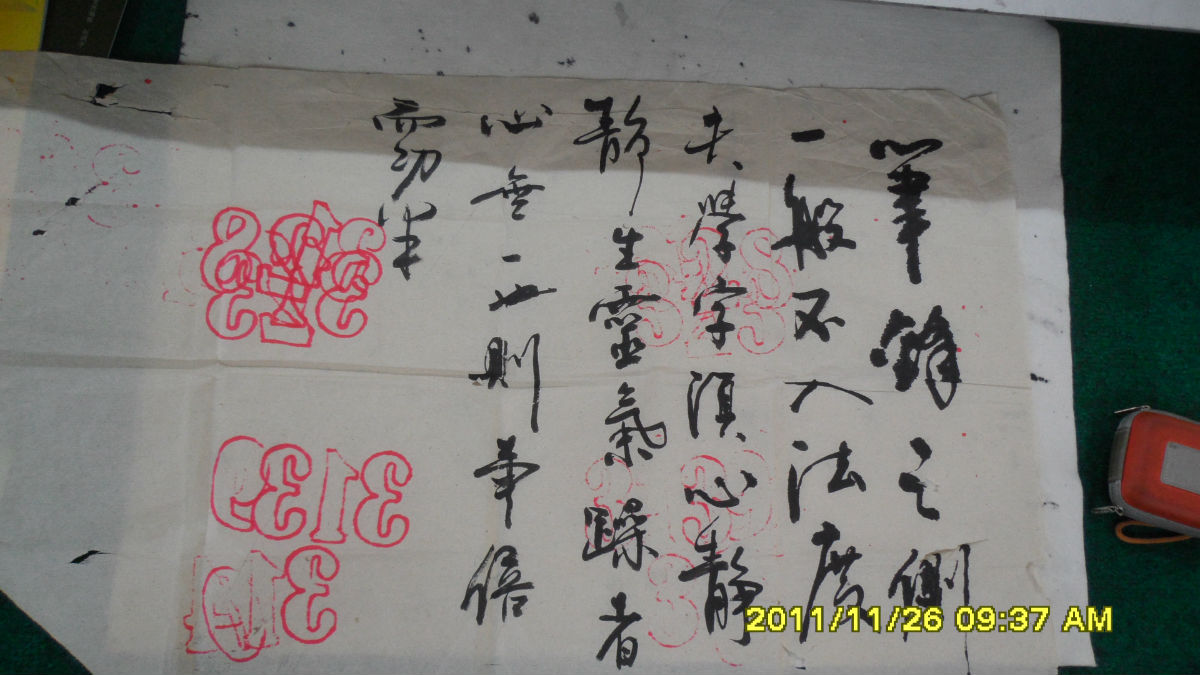 筆鋒之側
一般不入法度
夫學字須心靜
靜生靈氣躁者
心無一世則事倍
而功半
2011/11/26 09:37 AM